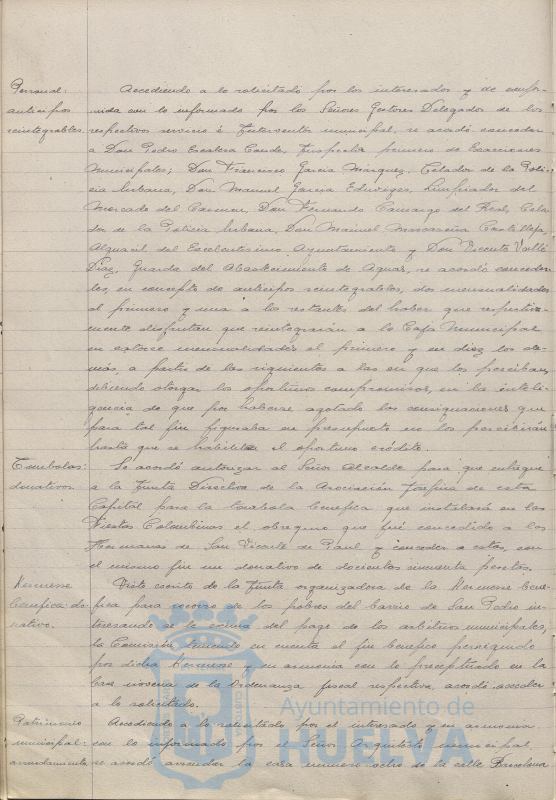 Personal:
anticipos
reintegrables.
Accediendo a lo solicitado por los interesados y de confor-
midad con lo informado por los Señores Gestores Delegados de los
respectivos servicios é Interventor municipal, se acordó conceder
a Don Pedro Escalera Conde, Inspector primero de Exacciones
Municipales; Don Francisco Garcia Marquez, Celador de la Poli-
cia Urbana, Don Manuel Garcia Eduviges, Limpiador del
Mercado del Carmen, Don Fernando Camargo del Real, Cela-
dor de la Policia Urbana, Don Manuel
Alguacil del Excelentisimo Ayuntamiento y Don Vicente Valle
Diaz, Guarda del Abastecimiento de Aguas, se acordó conceder-
les, en concepto de anticipos reintegrables, dos mensualidades
al primero y una a los restantes del haber que respectiva-
mente disfrutan que reintegrarán a la Caja Municipal
en catorce mensualidades el primero y en diez los de-
más, a partir de las siguientes a las en que los perciban,
debiendo otorgar los oportunos compromisos, en la inteli-
gencia de que por haberse agotado las consignaciones que
para tal fin figuraban en presupuesto no los percibirán
hasta que se habilite el oportuno crédito.
Tombolas:
donativos.
Se acordó autorizar al Señor Alcalde para que entregue
a la Junta Directiva de la Asociación Josefina de esta
Capital para la tombola benefica que instalará en las
Fiestas Colombinas el obsequio que fué concedido a las
Hermanas de San Vicente de Paul y conceder a estas, con
el mismo fin un donativo de doscientas cincuenta pesetas.
Kermesse
benefica: do-
nativo.
Visto escrito de la Junta organizadora de la Kermesse bene-
fica para socorro de los pobres del barrio de San Pedro in-
teresando se le exima del pago de los arbitrios municipales,
la Comisión teniendo en cuenta el fin benefico perseguido
por dicha Kermesse y en armonia con lo preceptuado en la
base novena de la Ordenanza fiscal respectiva, acordó acceder
a lo solicitado.
Patrimonio
municipal:
arrendamiento.
Accediendo a lo solicitado por el interesado y en armonia
con lo informado por el Señor Arquitecto municipal,
se acordó arrendar la casa numero ocho de la calle Barcelona
Ayuntamiento de
HUELVA